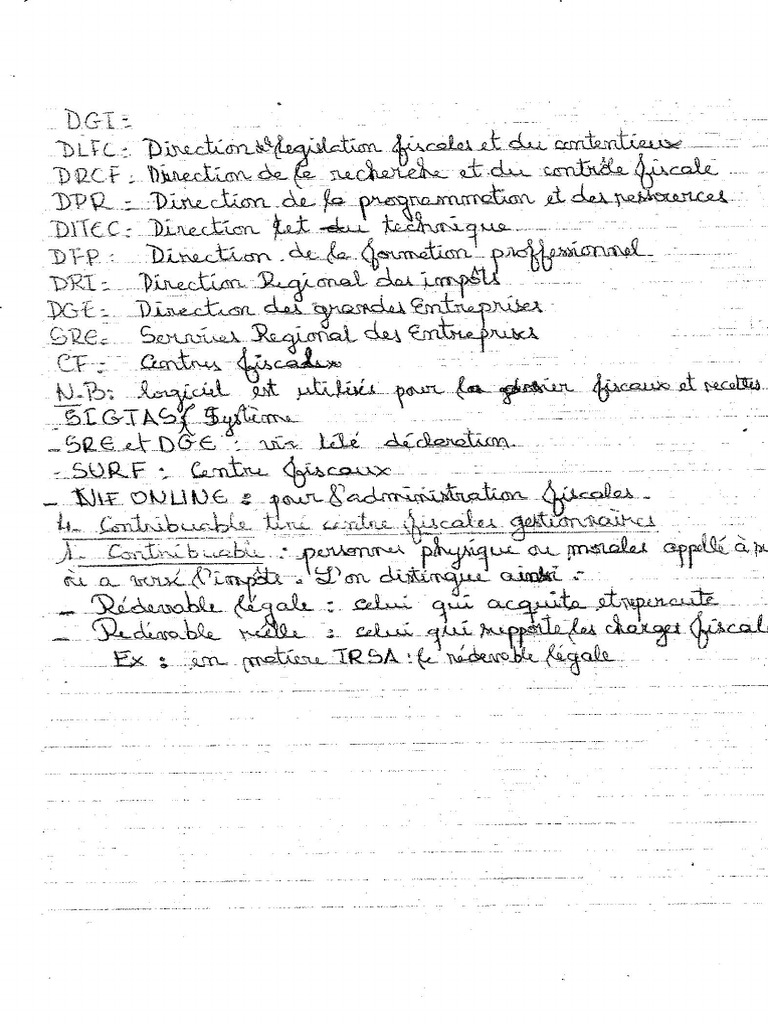 DGI :
DLFC : Direction de legislation fiscales et du contentieux
DRCF : Direction de la recherche et du contrôle fiscale
DPR = Direction de la programmation et des ressources
DITEC : Direction et du technique
DFP : Direction de la formation proffessionnel
DRI : Direction Regional des impôts
DGE : Direction des grandes Entreprises
SRE : Services Regional des Entreprises
CF : Centres fiscaux
N.B : logiciel est utilisés pour fiscaux et recettes
SIGTAS Système
- SRE et DGE : via télé déclaration
- SURF : Centre fiscaux
- NIF ONLINE : pour l'administration fiscales -
4. Contribuable centre fiscales gestionnaires
1. Contribuable : personnes physique ou morales appellé à
où a versé l'impôts. L'on distingue ainsi :-
- Rédevable légale : celui qui acquite et repercute
- Redévable réelle : celui qui supporte les charges fiscal
Ex : en matière IRSA : le rédevable légale